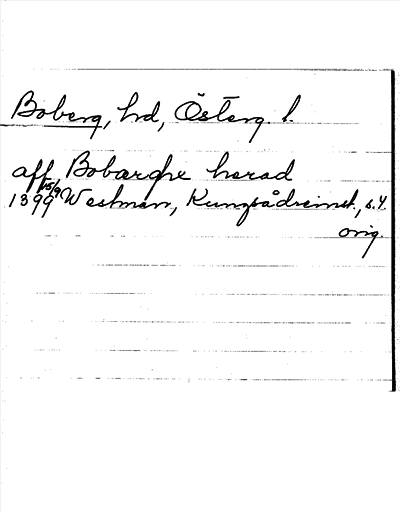 Boberg, hd, Österg. l.
aff Bobærghe hærad
1399 15/9 Westman, Kungsrådsinst., s. 4.
orig.